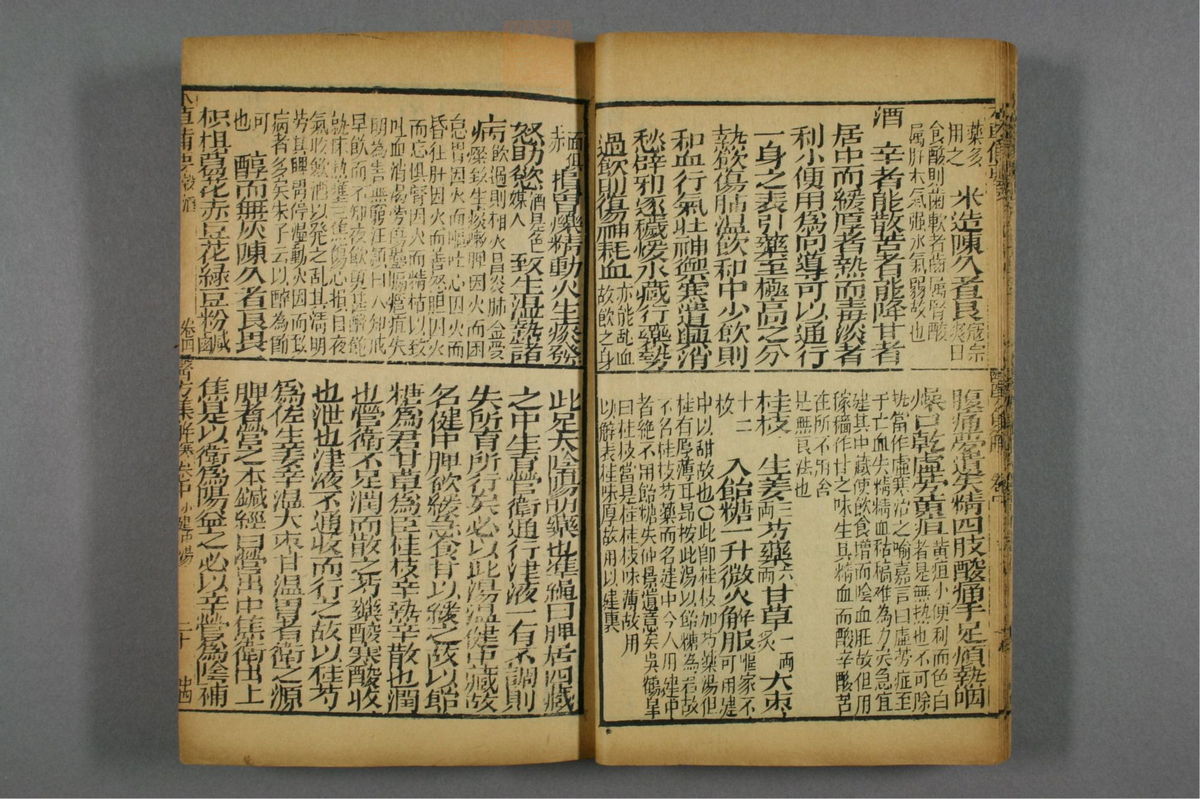 藥多
用之
米造陳久者良
寇宗
奭曰
食酸則齒軟者齒屬腎酸
屬肝木氣强水氣弱故也
酒 辛者能散苦者能降甘者
居中而緩厚者熱而毒淡者
利小便用為向導可以通行
一身之表引藥至極高之分
熱飲傷肺温飲和中少飲則
和血行氣壯神禦寒遣興消
愁辟邪逐穢煖水藏行藥勢
過飲則傷神耗血
亦能乱血
故飲之身
面俱
赤
損胃爍精動火生痰發
怒助慾
酒是色
媒人
致生湿熱諸
病
飲過則相火昌炎肺金受
爍致生痰嗽脾因火而困
怠胃因火而嘔吐心因火而
昏狂肝因火而善怒胆因火
而忘惧腎因火而精枯以致
吐血消渴勞傷蠱膈癰疽失
明為害無窮汪穎曰人知戒
早飲而不知夜飲更甚醉飽
就床熱壅三焦傷心損目夜
氣收歛酒以發之乱其清明
勞其脾胃停湿動火因而致
病者多矣朱子云以醉為節
可
也
醇而無灰陳久者良畏
枳椇葛花赤豆花綠豆粉鹹鹵
腹痛夢遺失精四肢酸痛手足煩熱咽
燥口乾虛勞黃疸
黃疸小便利而色白
者是無熱也不可除
熱當作虛寒治之喻嘉言曰虛勞症至
于亡血失精精血枯槁难為力矣急宜
建其中藏使飲食增而陰血旺故但用
稼穡作甘之味生其精血而酸辛酸苦
在所不用舍
是無良法也
桂枝 生姜三兩芍藥六兩甘草一兩炙大枣
十二
枚
入飴糖一升微火解服
嘔家不
可用建
中以甜故也〇此即桂枝加芍藥湯但
桂有厚薄耳昂按此湯以飴糖為君故
不名桂枝芍藥而名建中今人用建中
者絕不用飴糖失仲景遺意矣吳鶴皋
曰桂枝當是桂桂枝味薄故用
以解表桂味厚故用以建裏
此足太陰陽明藥也準繩曰脾居四藏
之中生育營衛通行津液一有不調則
失所育所行矣必以此湯温建中藏故
名健中脾飲緩急食甘以緩之故以飴
糖為君甘草為臣桂枝辛熱辛散也潤
也營衛不足潤而散之芍藥酸寒酸收
也泄也津液不通收而行之故以桂芍
為佐生姜辛温大枣甘温胃者衛之源
脾者營之本鍼經曰營出中焦衛出上
焦是以衛為陽益之必以辛營為陰補
醫方集解 卷中 小建中湯 二十